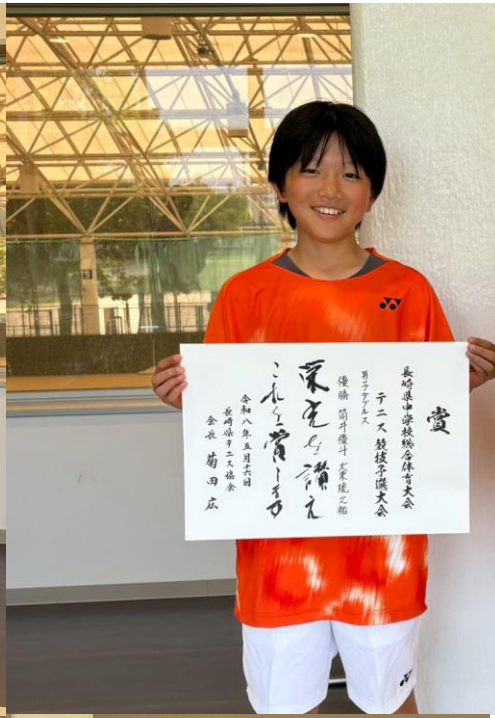 賞
長崎県中学校総合体育大会
テニス競技予選大会
男子ダブルス
優勝 筒井優斗 大束琉之祐
栄光を讃え
これを賞します
令和八年五月十六日
長崎県テニス協会
会長 菊田広